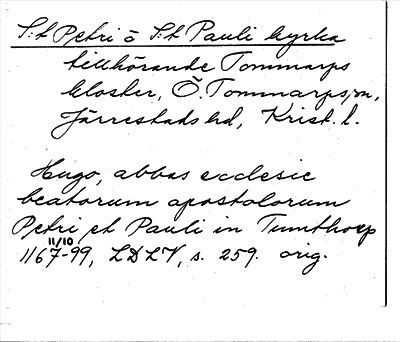 S:t Petri o S:t Pauli kyrka
tillhörande Tommarps
kloster, Ö. Tommarps sn,
Järrestads hd, Krist. l.
Hugo, abbas ecclesie
beatorum apostolorum
Petri et Pauli in Tumthorp
11/10
1167-99, LDLV, s. 259. orig.